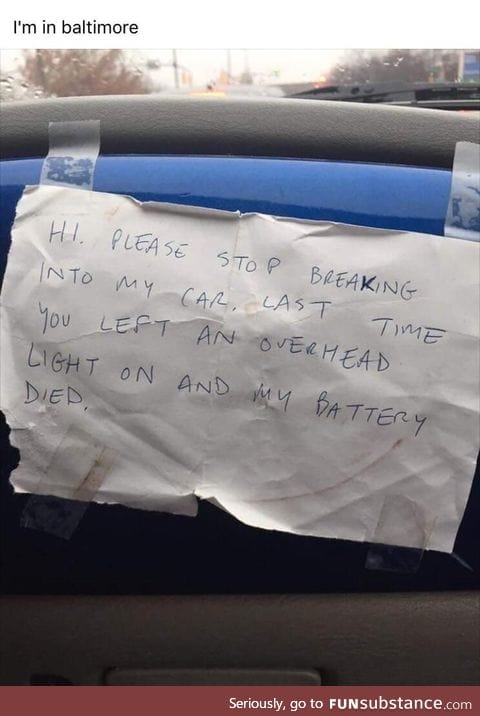 I'm in baltimore
HI. PLEASE STOP BREAKING
INTO MY CAR. LAST TIME
YOU LEFT AN OVERHEAD
LIGHT ON AND MY BATTERY
DIED.
Seriously, go to FUNsubstance.com